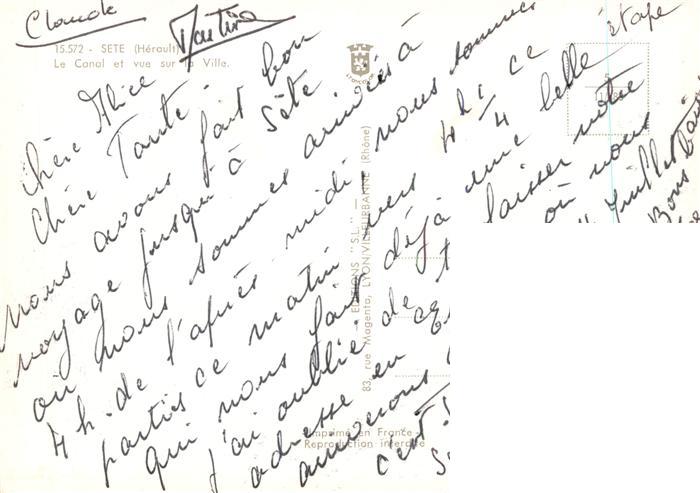 Claude
Martine
15.572 - SETE (Hérault)
Le Canal et vue sur la Ville.
Chère Alice
Chère Tante
nous avons fait bon
voyage jusqu'à Sète
où nous sommes arrivés à
4h. de l'après midi nous sommes
partis ce matin vers 4h 1/4 ce
qui nous fait déjà une belle étape
J'ai oublié de laisser notre
adresse en où nous
amuserons Juillet
c'est Bons
EDITIONS "S.L."
83, rue Magenta, LYON-VILLEURBANNE (Rhône)
Imprimé en France
Reproduction interdite